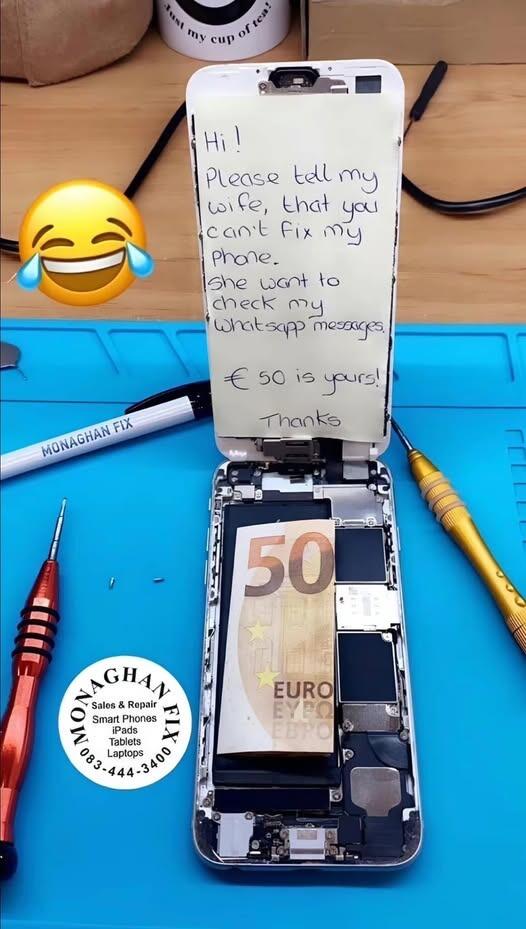 Just my cup of tea!
Hi!
Please tell my
wife, that you
can't fix my
Phone.
She want to
check my
Whatsapp messages.
€ 50 is yours!
Thanks
MONAGHAN FIX
50
EURO
ΕΥΡΩ
ЕВРО
MONAGHAN FIX
Sales & Repair
Smart Phones
iPads
Tablets
Laptops
083-444-3400